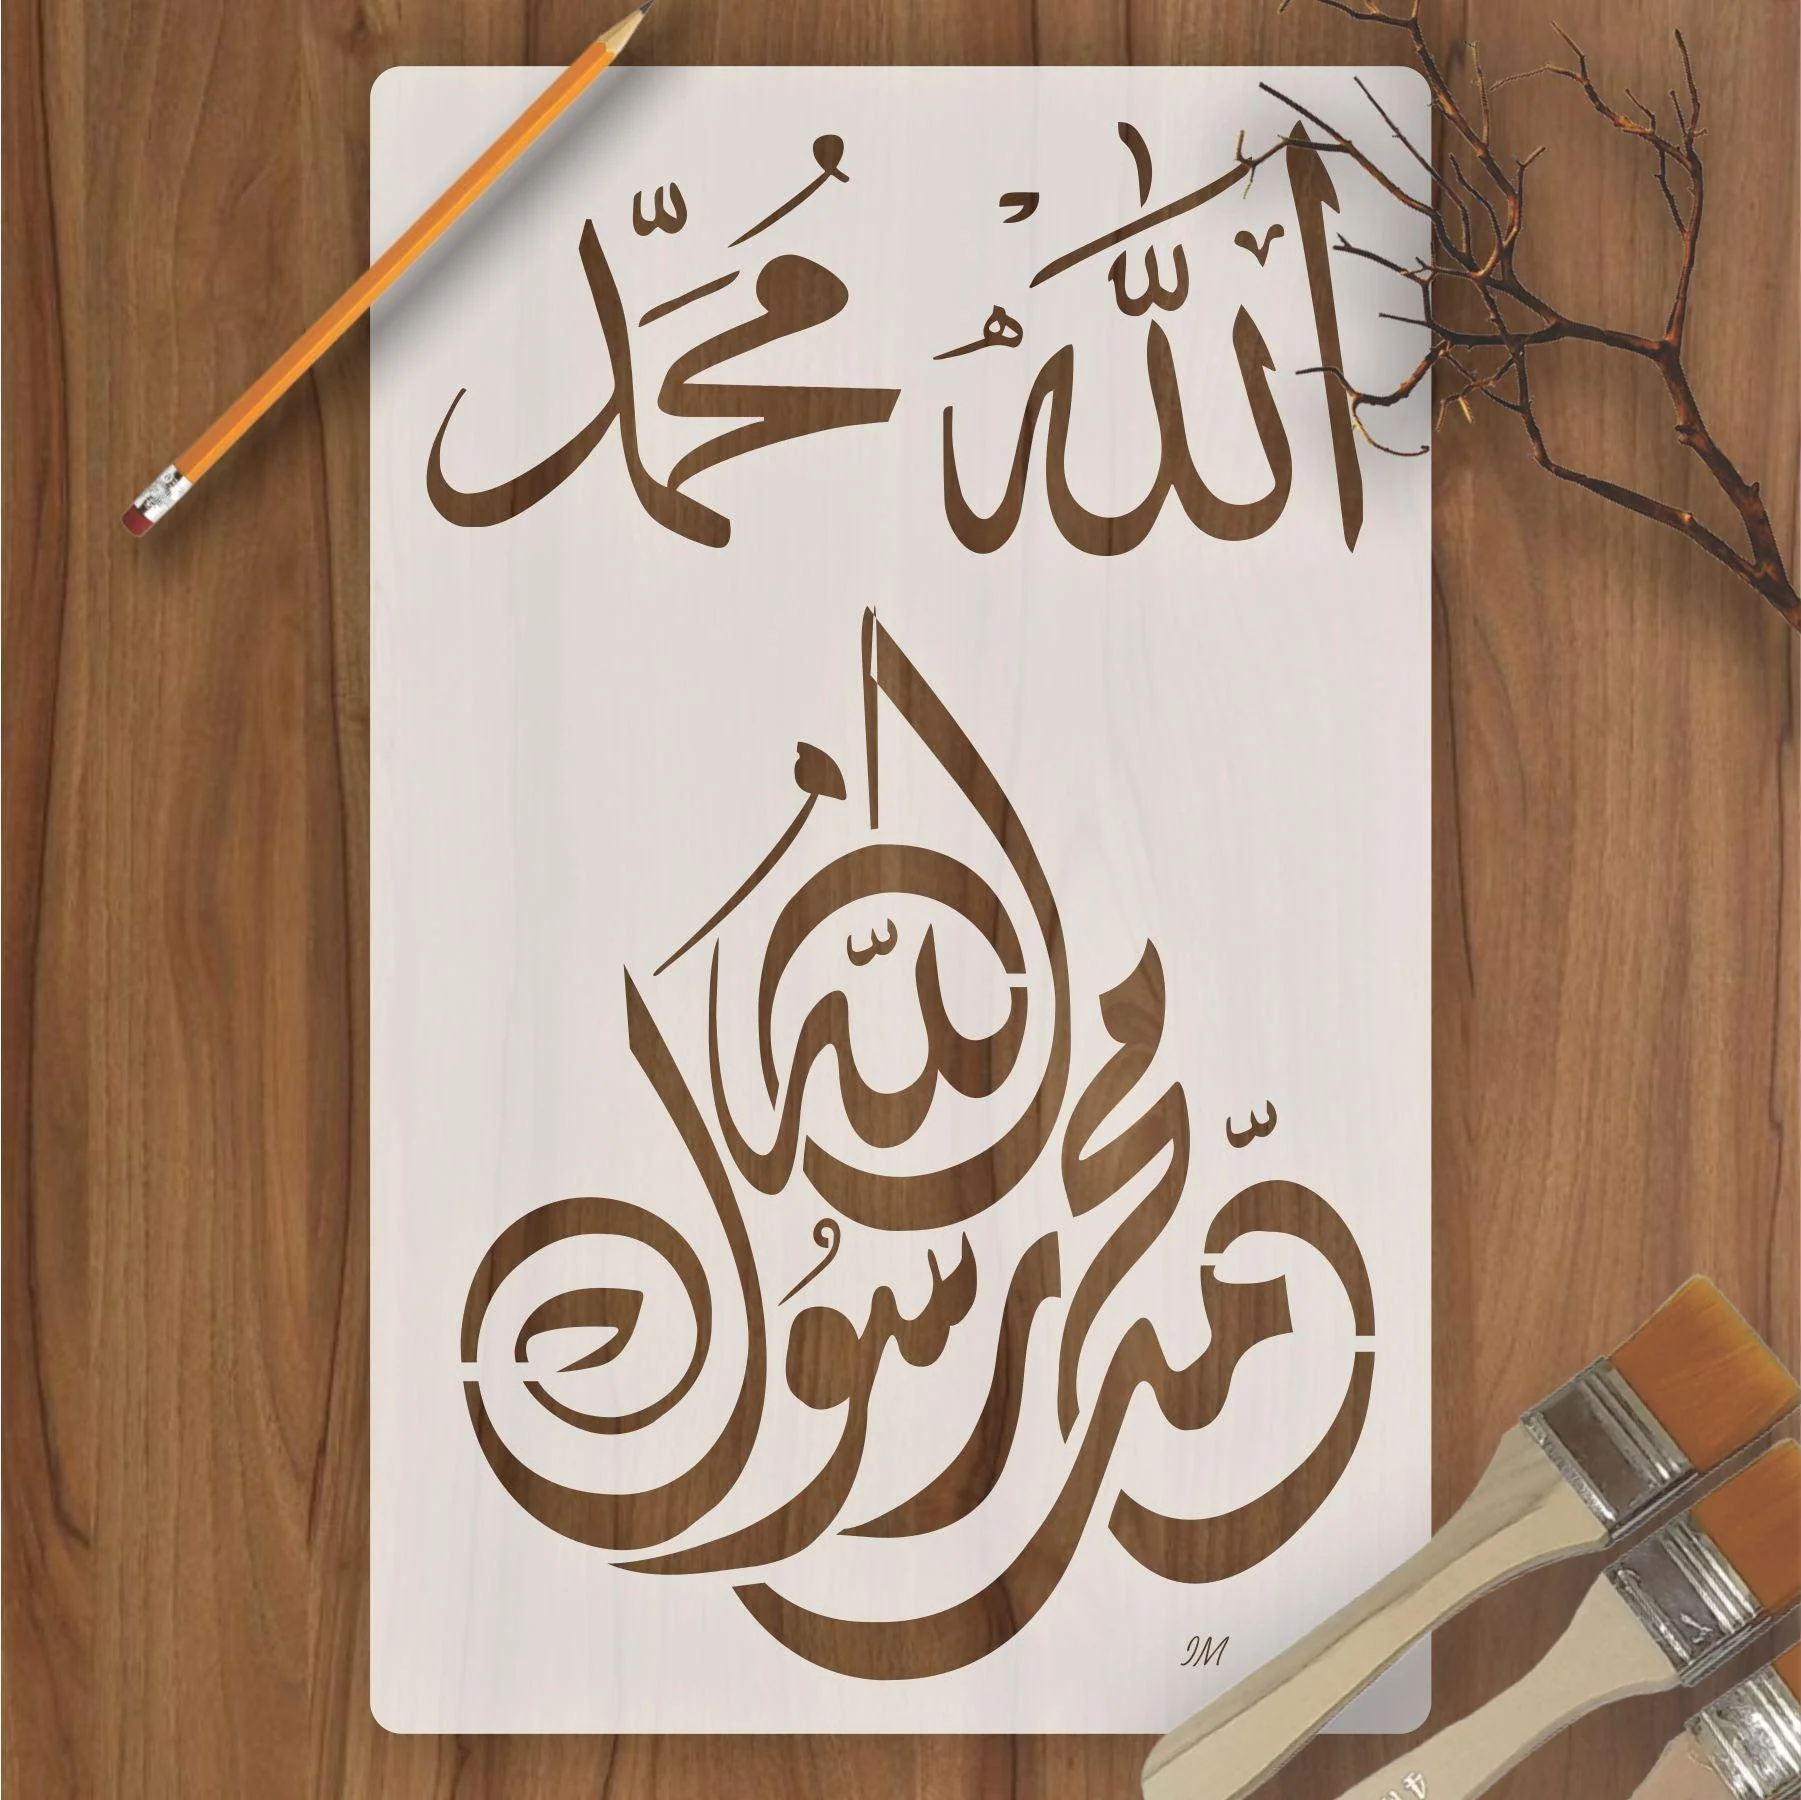 اَللّٰهُ مُحَمَّد
مُحَمَّد رَسُولُ اللّٰه
IM